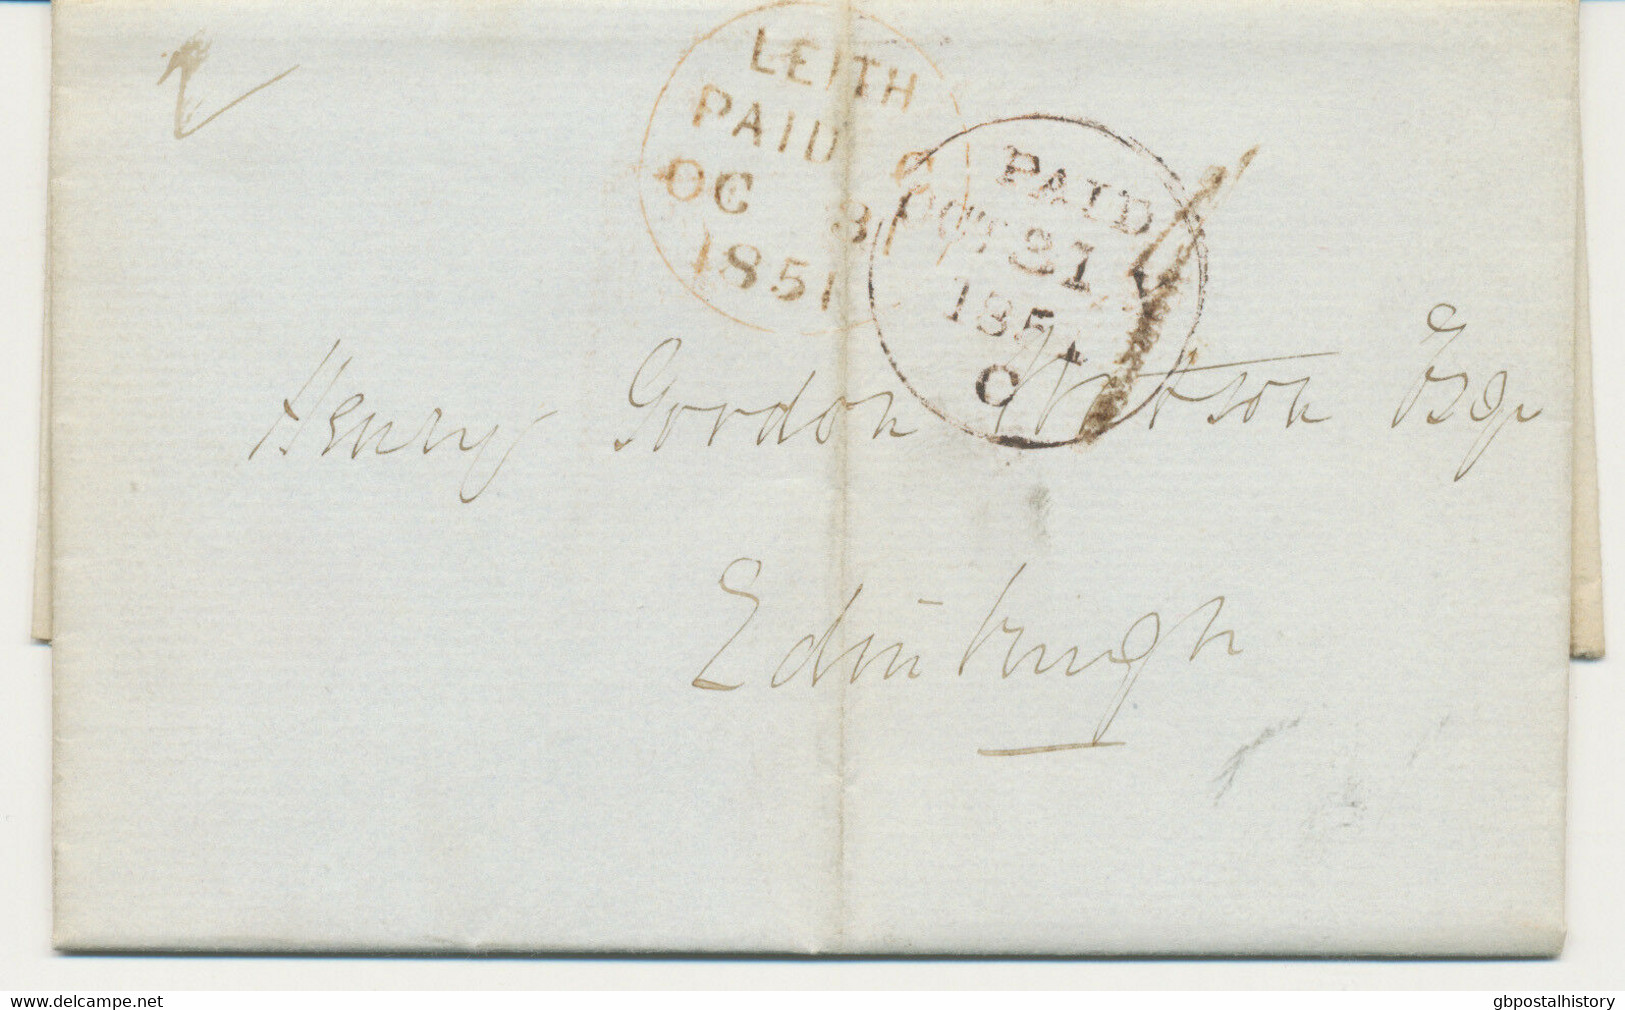 LEITH
PAID
C
OC
1851
PAID
OCT 21
1851
C
Henry Gordon Watson Esqr
Edinburgh
delcampe.net
gbpostalhistory